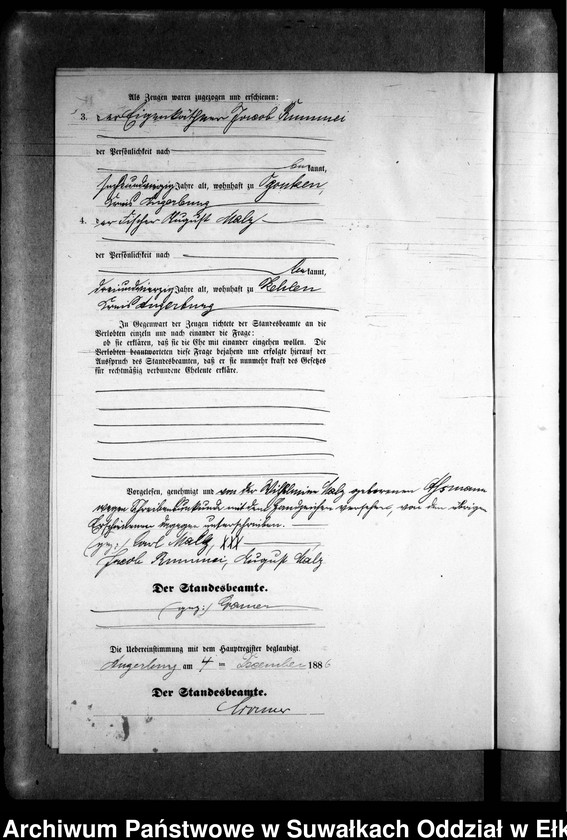 Als Zeugen waren zugezogen und erschienen:
3. der Eigenkäthner Jacob Rumniei
der Persönlichkeit nach
bekannt,
sechsundvierzig Jahre alt, wohnhaft zu
Kreis Angerburg
4. der Fischer August Malz
der Persönlichkeit nach
bekannt,
dreiundvierzig Jahre alt, wohnhaft zu Kehlen
Kreis Angerburg
In Gegenwart der Zeugen richtete der Standesbeamte an die
Verlobten einzeln und nach einander die Frage:
ob sie erklären, daß sie die Ehe mit einander eingehen wollen. Die
Verlobten beantworteten diese Frage bejahend und erfolgte hierauf der
Ausspruch des Standesbeamten, daß er sie nunmehr kraft des Gesetzes
für rechtmäßig verbundene Eheleute erkläre.
Vorgelesen, genehmigt und von der Wilhelmine Malz geborenen
wegen Schreibensunkunde mit dem Handzeichen versehen, von den übrigen
Erschienenen dagegen unterschrieben.
(gez:) Carl Malz, XXX
Jacob Rumniei, August Malz
Der Standesbeamte.
(gez:) Cramer
Die Uebereinstimmung mit dem Hauptregister beglaubigt.
Angerburg am 4 ten Dezember 1886
Der Standesbeamte.
Cramer
Archiwum Państwowe w Suwałkach Oddział w Ełk